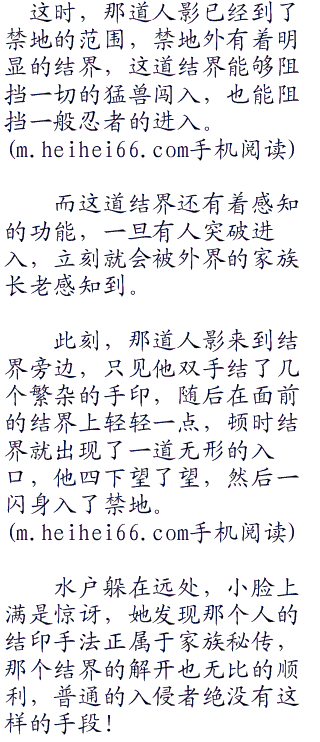 这时，那道人影已经到了
禁地的范围，禁地外有着明
显的结界，这道结界能够阻
挡一切的猛兽闯入，也能阻
挡一般忍者的进入。
(m.heihei66.com手机阅读)
而这道结界还有着感知
的功能，一旦有人突破进
入，立刻就会被外界的家族
长老感知到。
此刻，那道人影来到结
界旁边，只见他双手结了几
个繁杂的手印，随后在面前
的结界上轻轻一点，顿时结
界就出现了一道无形的入
口，他四下望了望，然后一
闪身入了禁地。
(m.heihei66.com手机阅读)
水户躲在远处，小脸上
满是惊讶，她发现那个人的
结印手法正属于家族秘传，
那个结界的解开也无比的顺
利，普通的入侵者绝没有这
样的手段！